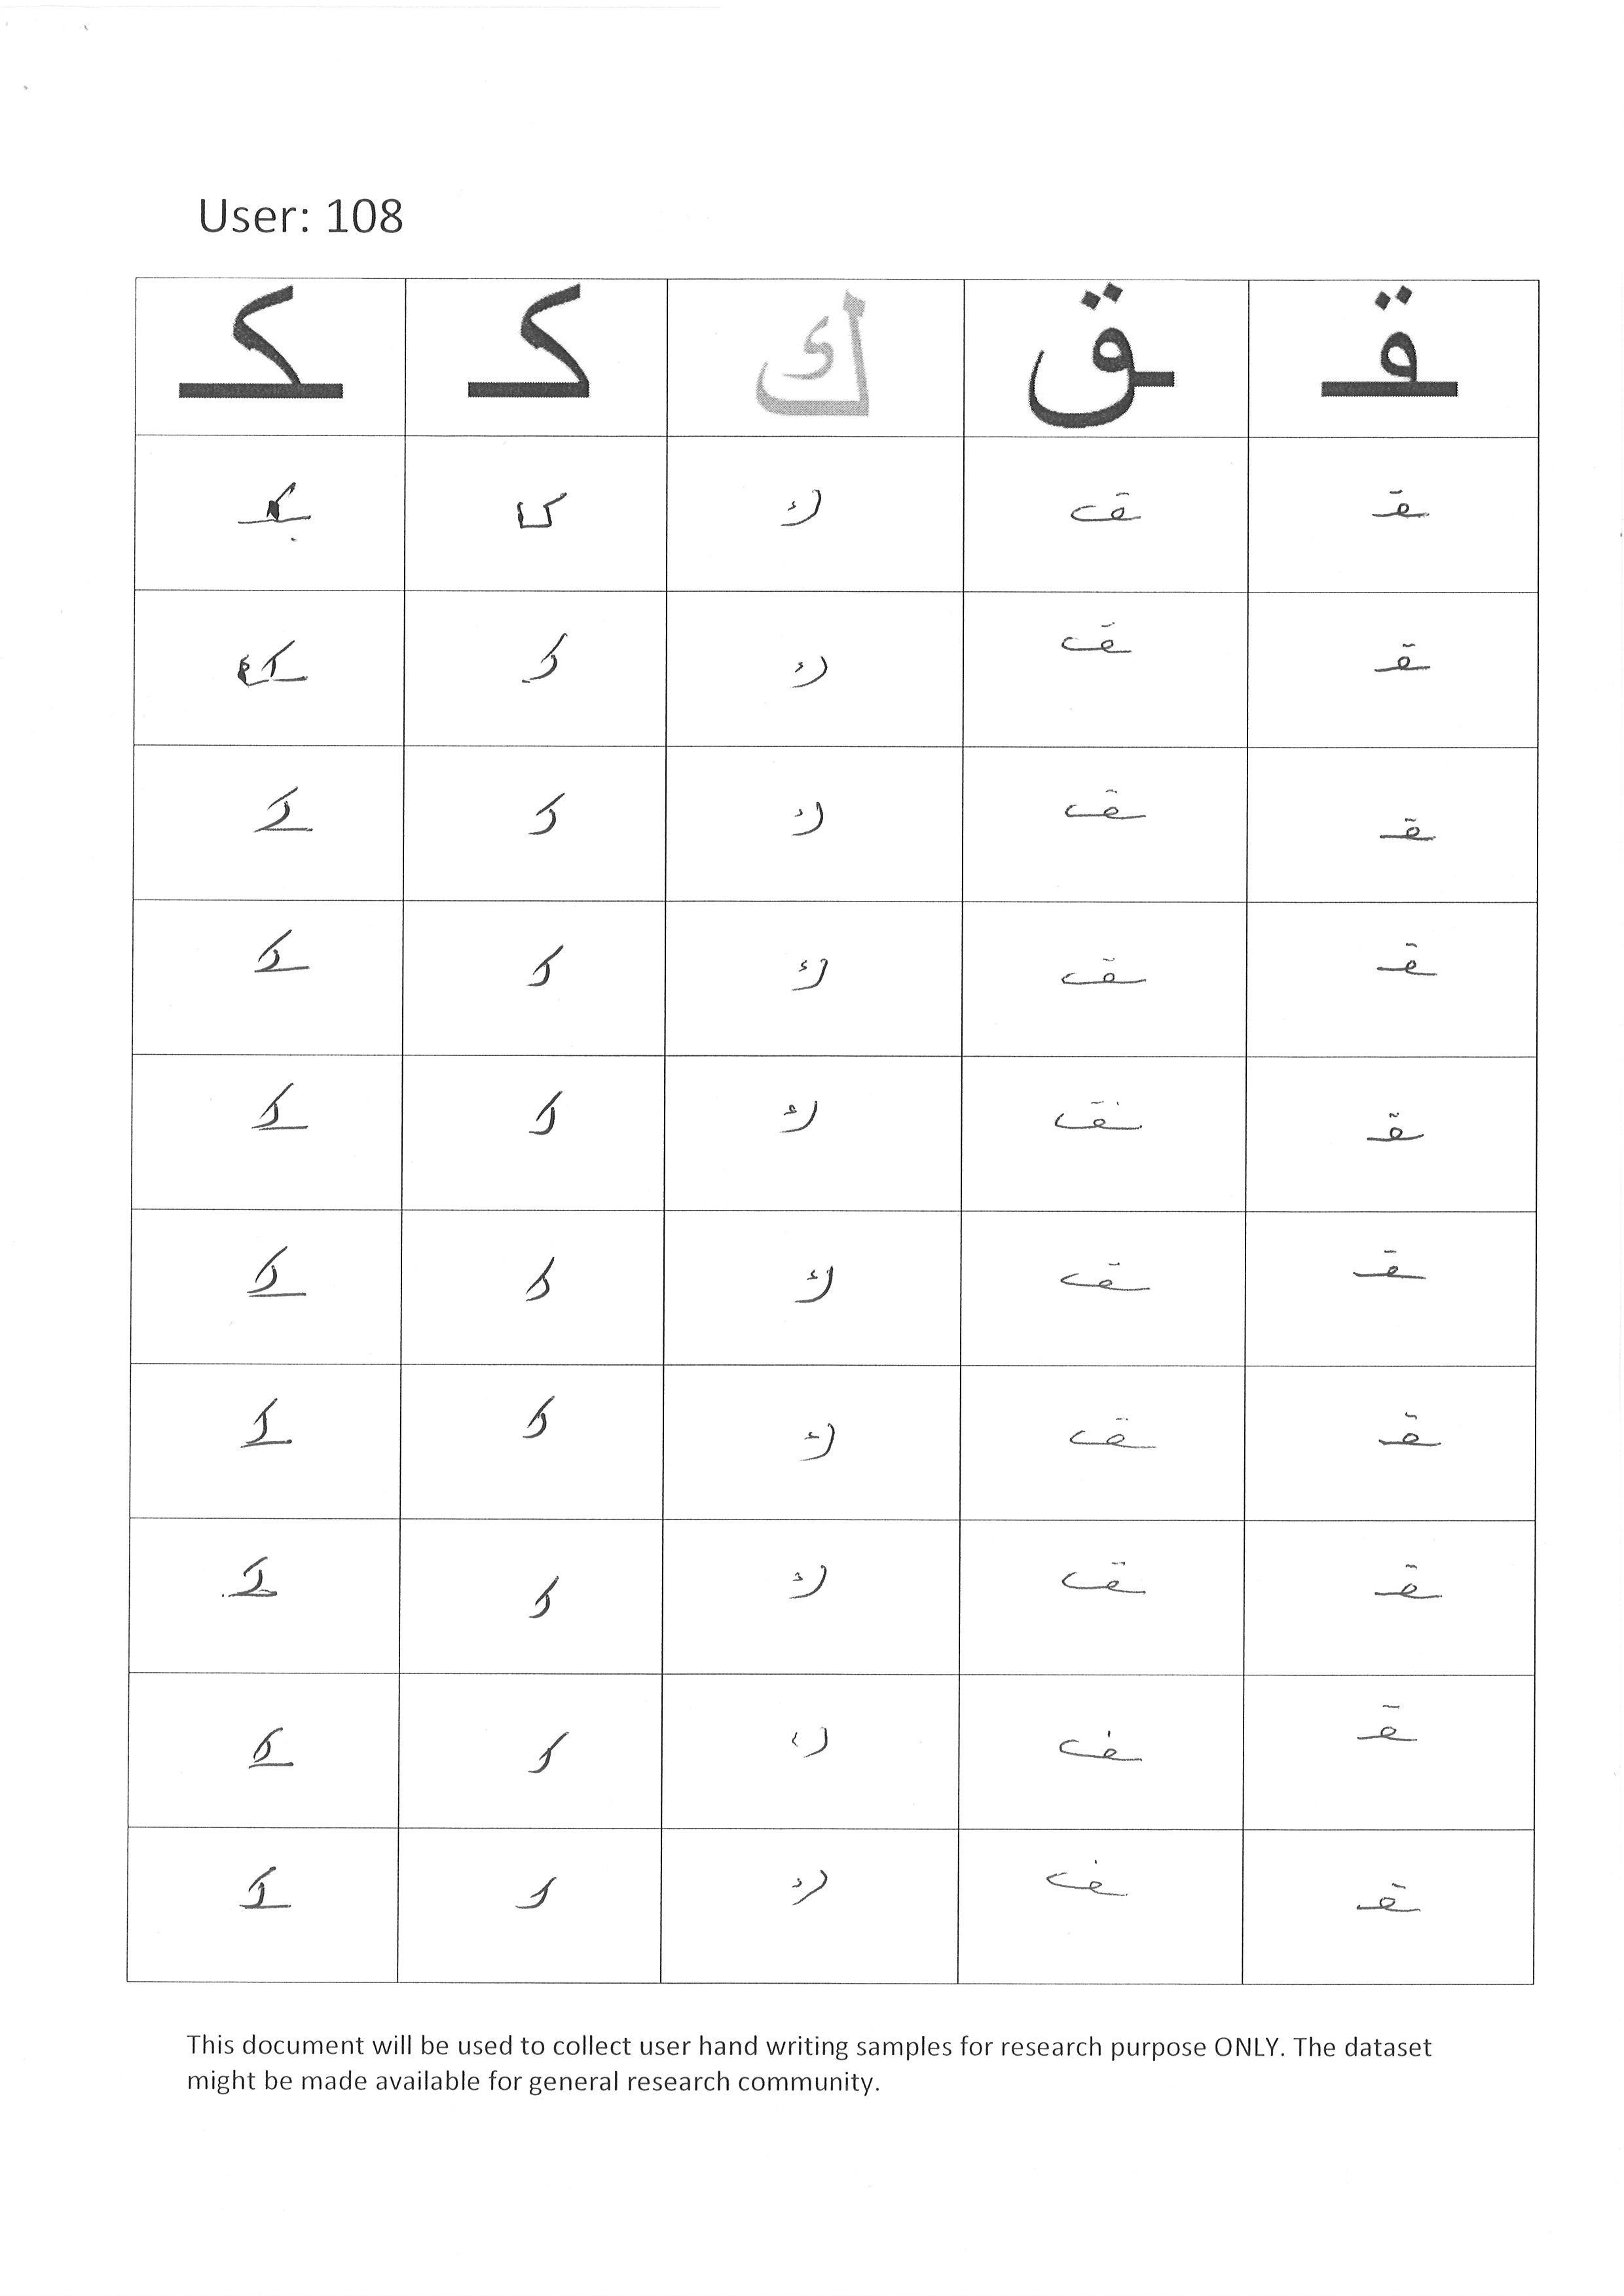 User: 108
ـقـ ـق ك كـ ـكـ
ـقـ ـق ك كـ ـكـ
ـقـ ـق ك كـ ـكـ
ـقـ ـق ك كـ ـكـ
ـقـ ـق ك كـ ـكـ
ـقـ ـق ك كـ ـكـ
ـقـ ـق ك كـ ـكـ
ـقـ ـق ك كـ ـكـ
ـقـ ـق ك كـ ـكـ
ـقـ ـف ك كـ ـكـ
ـقـ ـف ك كـ ـكـ
This document will be used to collect user hand writing samples for research purpose ONLY. The dataset
might be made available for general research community.